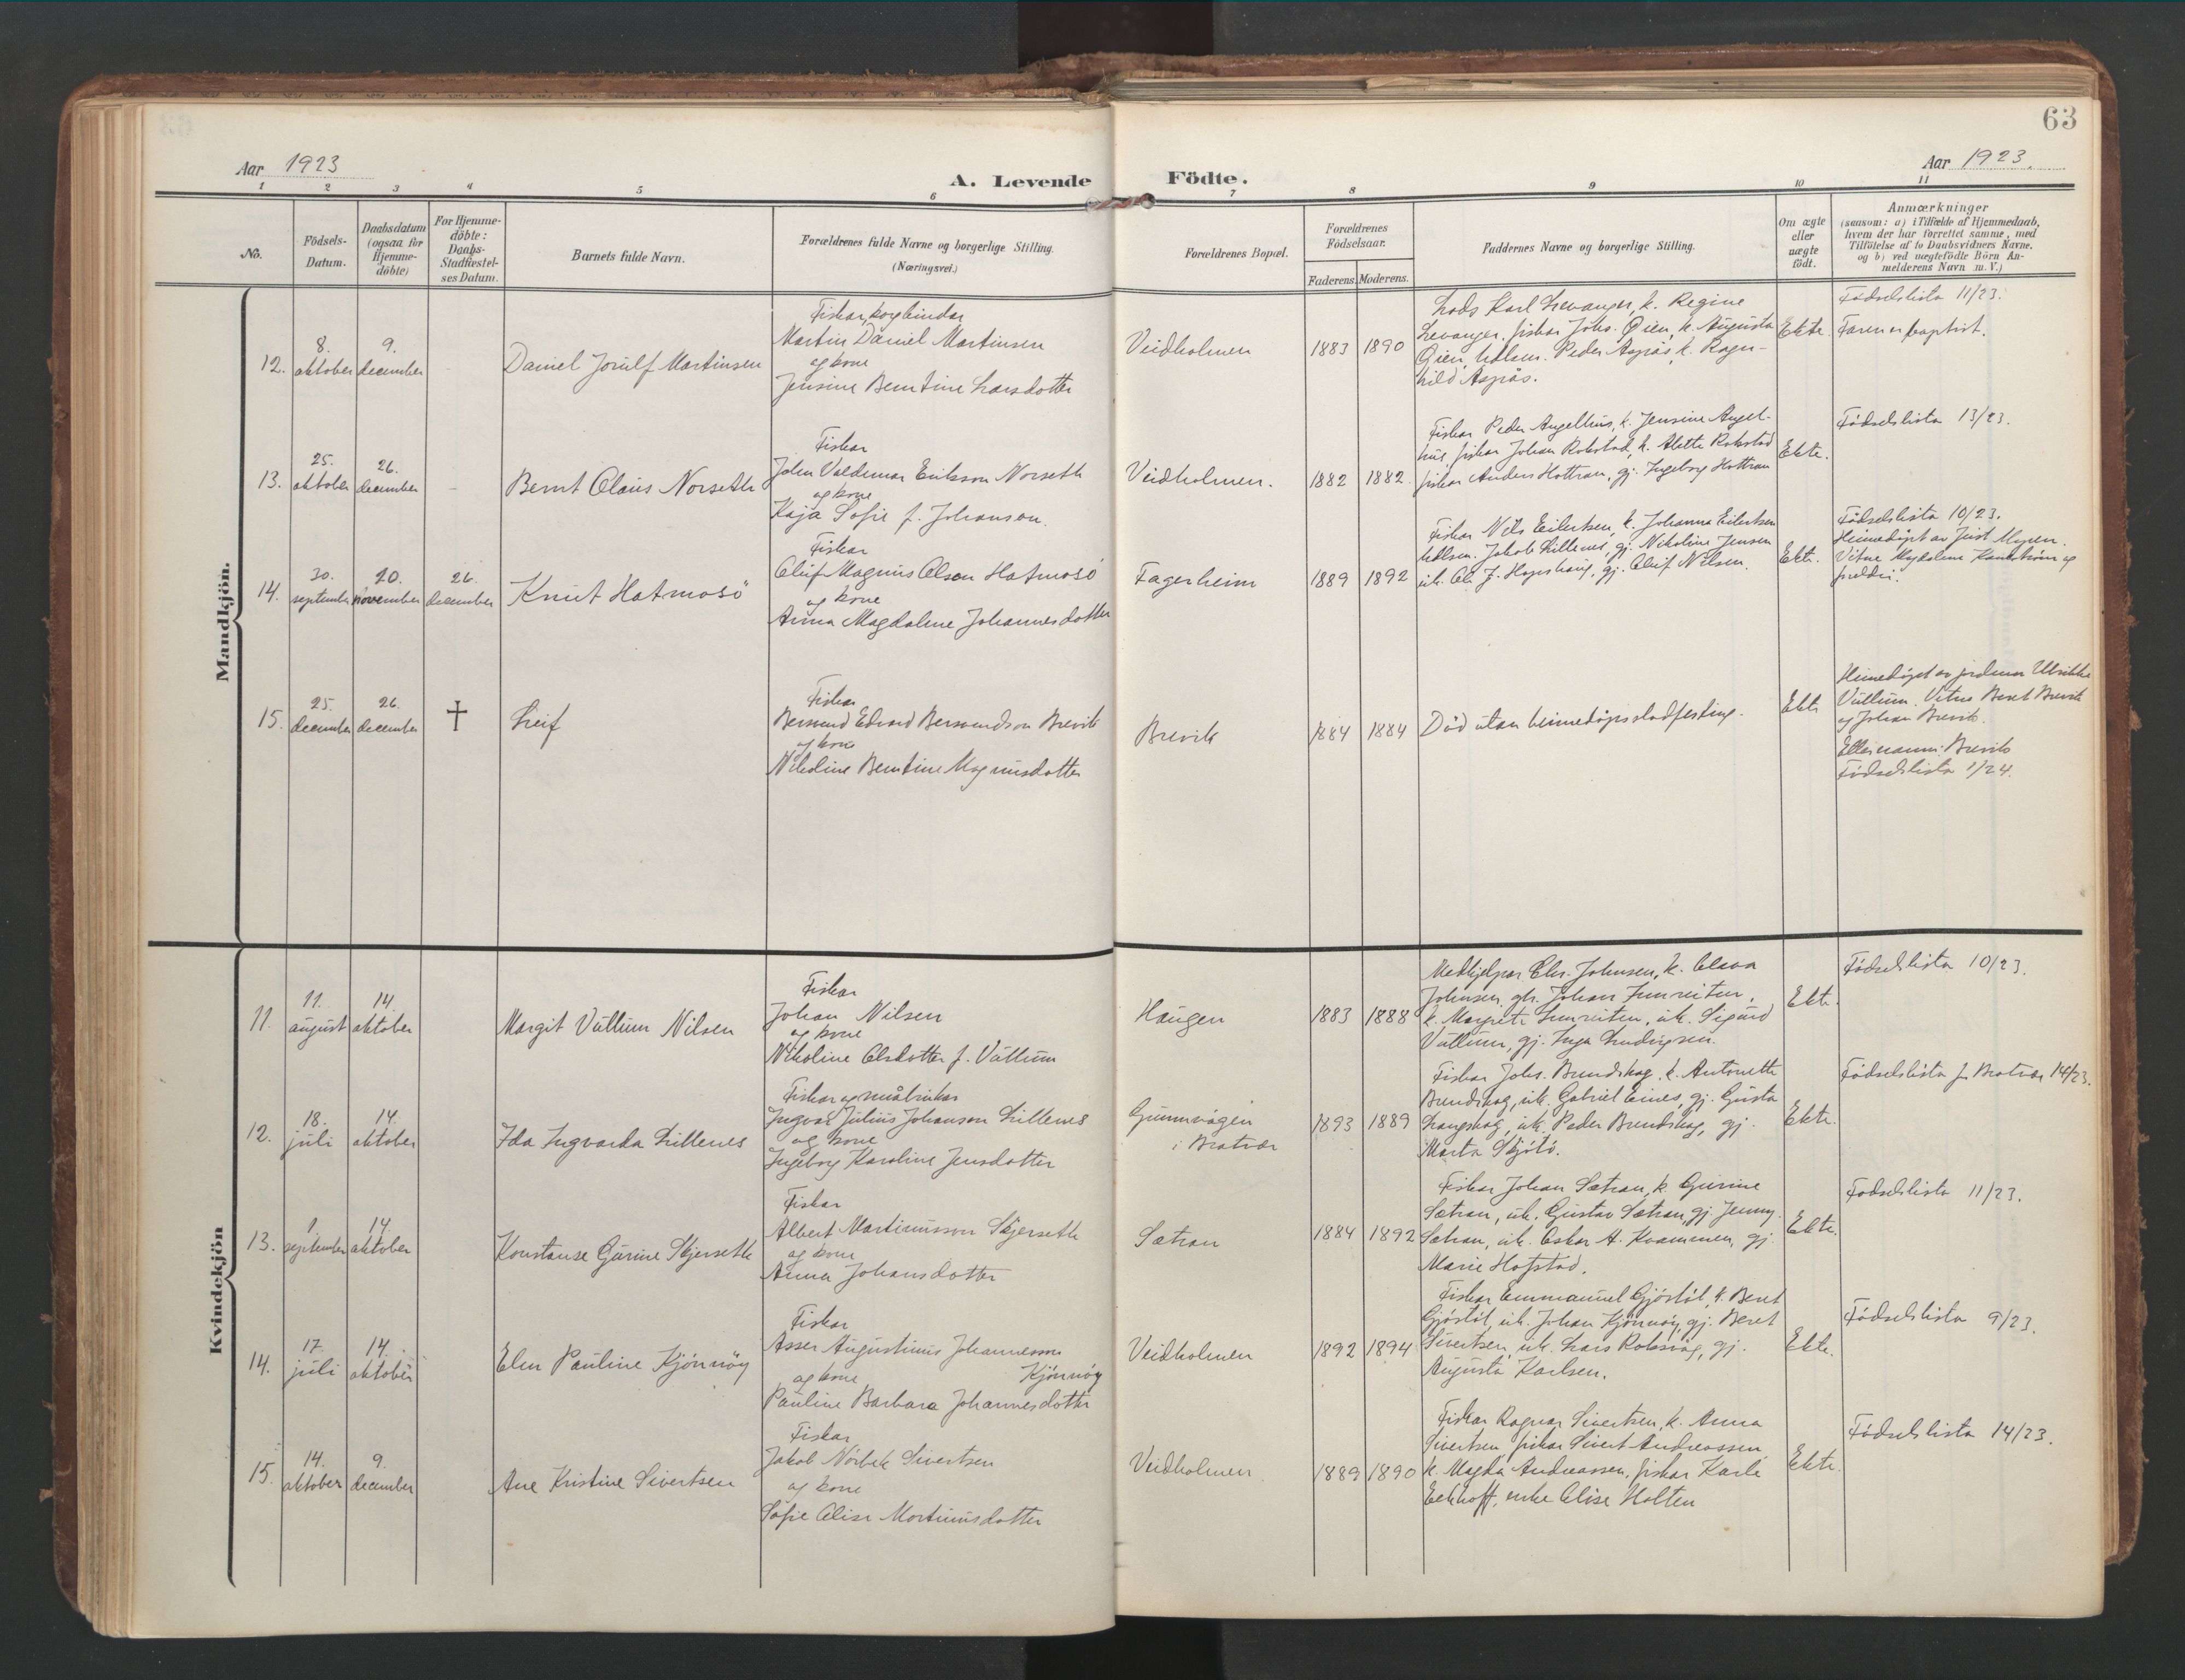 63
Aar 1923
A. Levende Födte.
Aar 1923.
1 2 3 4 5 6 7 8 9 10 11
No.
Födsels-
Datum.
Daabsdatum
(ogsaa for
Hjemme-
döbte)
For Hjemme-
döbte:
Daabs-
Stadfæstel-
ses Datum.
Barnets fulde Navn.
Forældrenes fulde Navne og borgerlige Stilling.
(Næringsvei.)
Forældrenes Bopæl.
Forældrenes
Födselsaar.
Faderens. Moderens.
Faddernes Navne og borgerlige Stilling.
Om ægte
eller
uægte
födt.
Anmærkninger
(saasom: a) i Tilfælde af Hjemmedaab,
hvem der har forrettet samme, med
Tilföielse af to Daabsvidners Navne,
og b) ved uægtefödte Börn An-
melderens Navn m. V.)
Mandkjön.
12.
8.
oktober
9.
december
Daniel Jorulf Martinsen
Fiskar,
Martin Daniel Martinsen
og kone
Jensine Berntine Larsdotter
Veidholmen
1883 1890
Lods Karl Levanger, k. Regine
Levanger, fiskar Johs. Øien, k. Augusta
Øien, Peder Aspås, k. Ragn-
hild Aspås.
Ekte.
Fødselslista 11/23.
Faren er baptist.
13.
25.
oktober
26.
december
Bernt Olaus Norseth
Fiskar
John Valdemar Eriksson Norseth
og kone
Kaja Sofie f. Johansen.
Veidholmen.
1882 1882
Fiskar Peder Angellhus, k. Jensine Angel-
hus, fiskar Johan Rokstad, k. Alette Rokstad
fiskar Anders Hottran, gj. Ingeborg Hottran
Ekte.
Fødselslista 13/23.
14.
30.
september
20.
november
26.
december
Knut Hatmosö
Fiskar
Oluf Magnus Olsen Hatmosö
og kone
Anna Magdalene Johannesdotter
Fagerheim
1889 1892
Fiskar Nils Eilertsen, k. Johanna Eilertsen
Jakob Lillenes, gj. Nikoline Jensen
uk. Ole J. Hopshaug, gj. Oluf Nilsen.
Ekte.
Fødselslista 10/23.
Heimedøpt av Just Mogen.
Vitne Magdalene og
foreldri.
15.
25.
december
26.
december
†
Leif
Fiskar
Bersvend Edvard Bersvendson Brevik
og kone
Nikoline Berntine Magnusdotter
Brevik
1884 1884
Død utan heimedåpsstadfesting.
Ekte
Heimedøpt av jordmor Ulrikke
Vullum. Vitne Beret Brevik
og Johan Brevik.
Etternamn: Brevik
Fødselslista 1/24.
Kvindekjön
11.
11.
august
14
oktober
Margit Vullum Nilsen
Fiskar
Johan Nilsen
og kone
Nikoline Olsdotter f. Vullum
Haugen
1883 1888
Medhjelpar Chr. Johnsen, k. Olava
Johnsen, gbr. Johan Innreiten,
k. Margrete Innreiten, uk. Sigurd
Vullum, gj. Inga Ludvigsen.
Ekte.
Fødselslista 10/23.
12.
18.
juli
14.
oktober
Ida Ingvarda Lillenes
Fiskar og småbrukar
Ingvar Julius Johanson Lillenes
og kone
Ingeborg Karoline Jensdotter
Gunnvågen
i Bratvær
1893 1889
Fiskar Johs. Brendskag, k. Antonette
Brendskag, uk. Gabriel Eines, gj. Gusta
Langskag, uk. Peder Brendskag, gj.
Marta Skjölö.
Ekte.
Fødselslista f. Bratvær 14/23.
13.
1.
september
14.
oktober
Konstanse Gurine Skjerseth
Fiskar
Albert Martinusson Skjerseth
og kone
Anna Johansdotter
Sætran
1884 1892
Fiskar Johan Sætran, k. Gurine
Sætran, uk. Gustav Sætran, gj. Jenny
Sætran, uk. Oskar A. Kvammen, gj.
Marie Hofstad.
Ekte.
Fødselslista 11/23.
14.
17.
juli
14.
oktober
Elen Pauline Kjönnöy
Fiskar
Asser Augustinus Johannesson
og kone Kjönnöy
Pauline Barbara Johannesdotter
Veidholmen
1892 1894
Fiskar Emmanuel Gjöstöl, k. Beret
Gjöstöl, uk. Johan Kjönnöy, gj. Beret
Sivertsen, uk. Lars Roksvåg, gj.
Augusta Karlsen.
Ekte.
Fødselslista 9/23.
15.
14.
oktober
9.
december
Ane Kristine Sivertsen
Fiskar
Jakob Nörbek Sivertsen
og kone
Sofie Elise Martinusdotter
Veidholmen
1889 1890
Fiskar Ragnar Sivertsen, k. Anna
Sivertsen, fiskar Sivert Andreassen
k. Magda Andreassen, fiskar Karle
Eckhoff, enke Elise Holten
Ekte.
Fødselslista 14/23.